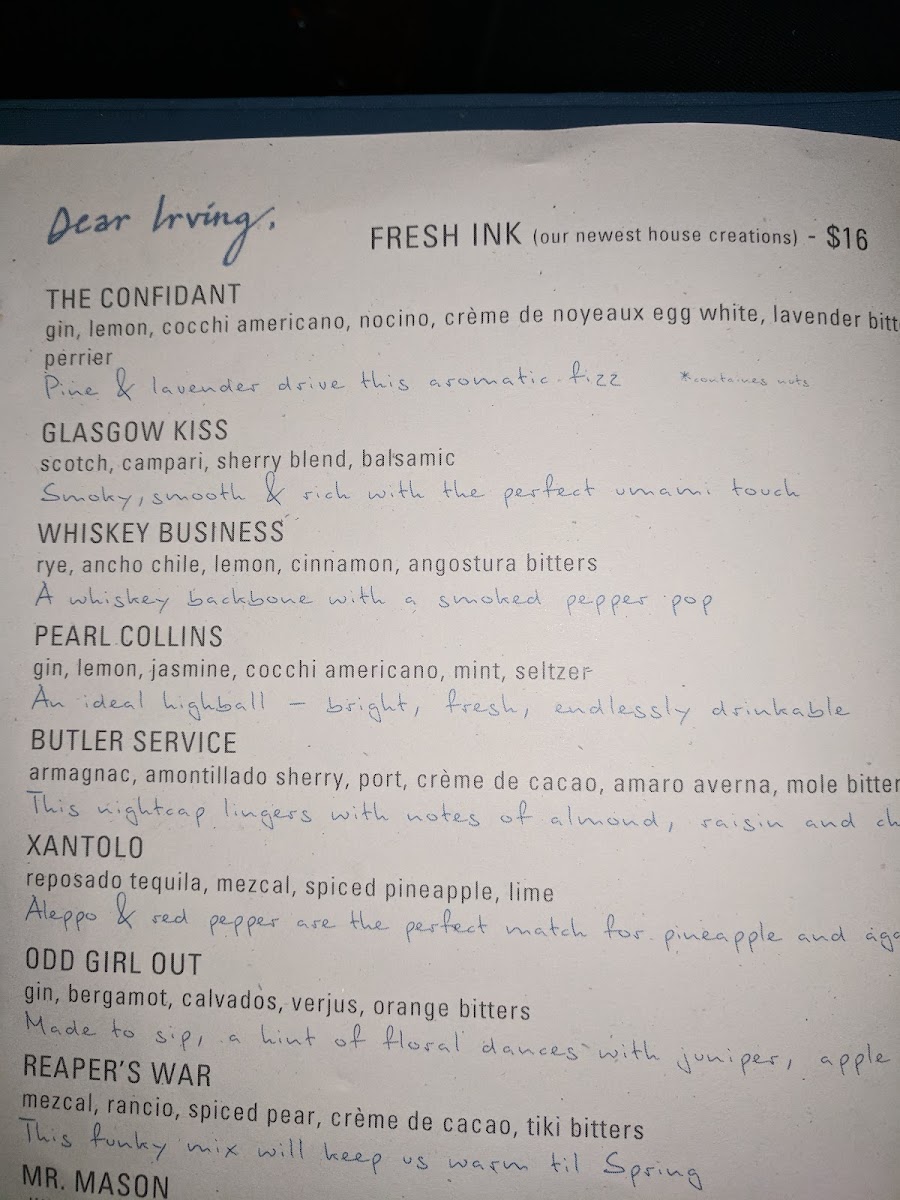 Dear Irving,
FRESH INK (our newest house creations) - $16
THE CONFIDANT
gin, lemon, cocchi americano, nocino, crème de noyeaux egg white, lavender bitt
perrier
Pine & lavender drive this aromatic fizz *containes nuts
GLASGOW KISS
scotch, campari, sherry blend, balsamic
Smoky, smooth & rich with the perfect umami touch
WHISKEY BUSINESS
rye, ancho chile, lemon, cinnamon, angostura bitters
A whiskey backbone with a smoked pepper pop
PEARL COLLINS
gin, lemon, jasmine, cocchi americano, mint, seltzer
An ideal highball – bright, fresh, endlessly drinkable
BUTLER SERVICE
armagnac, amontillado sherry, port, crème de cacao, amaro averna, mole bitter
This nightcap lingers with notes of almond, raisin and ch
XANTOLO
reposado tequila, mezcal, spiced pineapple, lime
Aleppo & red pepper are the perfect match for pineapple and aga
ODD GIRL OUT
gin, bergamot, calvados, verjus, orange bitters
Made to sip, a hint of floral dances with juniper, apple
REAPER'S WAR
mezcal, rancio, spiced pear, crème de cacao, tiki bitters
This funky mix will keep us warm til Spring
MR. MASON